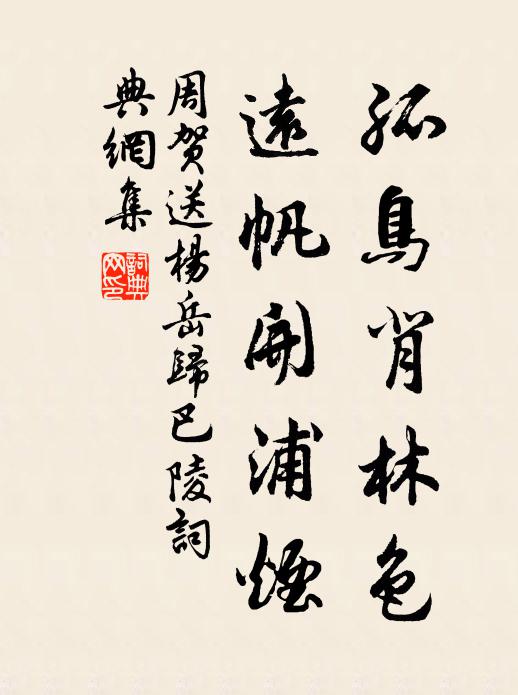 孤鳥背林色
遠帆開浦煙
周賀送楊岳歸巴陵詞
典網集
詞典網印